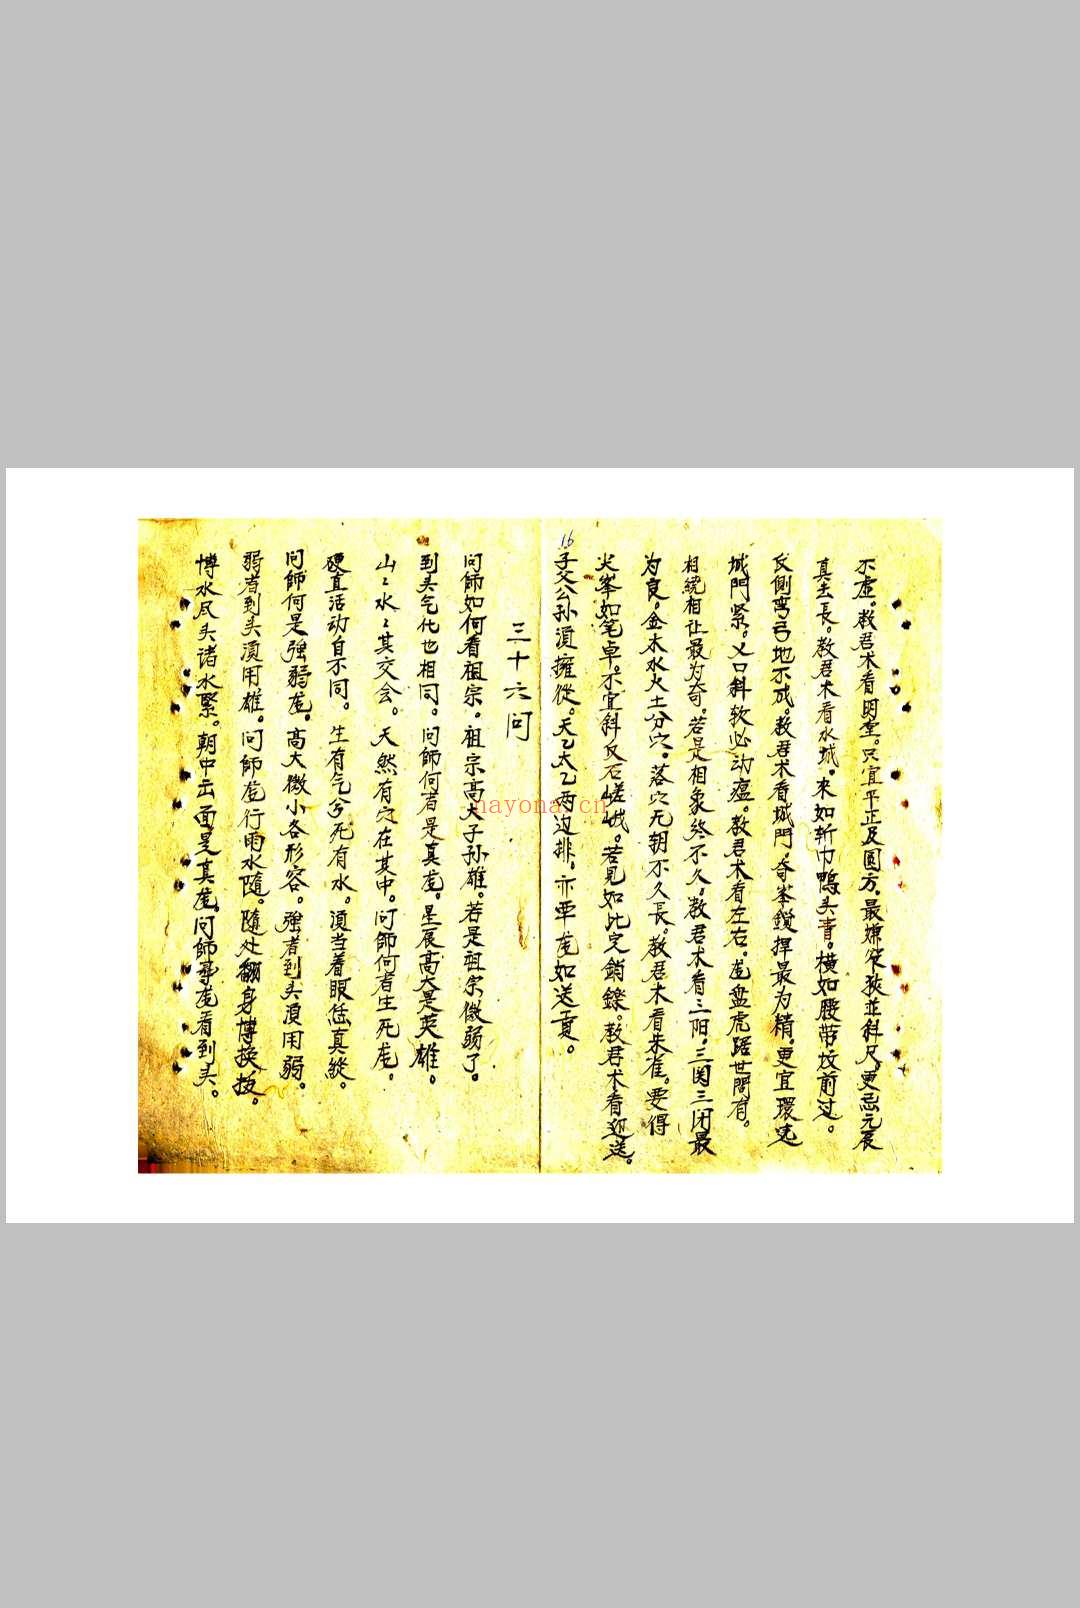 不虚。教君术看明堂。只宜平正及圆方。最嫌窄狭並斜尺。更忌元辰
真去長。教君术看水城。來如斩巾鴨头青。横如腰带坟前过。
反側弯弓地不成。教君术看城門。奇峯鋭捍最为精。更宜環遶
城門紧。义口斜软必动瘟。教君术看左右。龙盘虎踞世間有。
相繞相让最为奇。若是相象終不久。教君术看三阳。三関三闭最
为良。金木水火土分穴。落穴无朝不久長。教君木看朱雀。要得
尖峯如笔卓。不宜斜反石嵯峨。若見如此定銷鑠。教君术看迎送。
16
子父公孙須擁從。天乙太乙两边排。亦要龙如送
三十六问
问師如何看祖宗。祖宗高大子孙雄。若是祖宗微弱了。
到头气化也相同。问師何者是真龙。星辰高大是英雄。
山〻水〻其交会。天然有穴在其中。问師何者生死龙。
硬直活动自不同。生有气兮死有水。須当着眼
问師何是強弱龙。高大微小各形容。強者到头須用弱。
弱者到头須用雄。问師龙行雨水隨。隨处翻身博换
博水尽头诸水緊。朝中出面是真龙。问師尋龙看到头。
nayona.cn